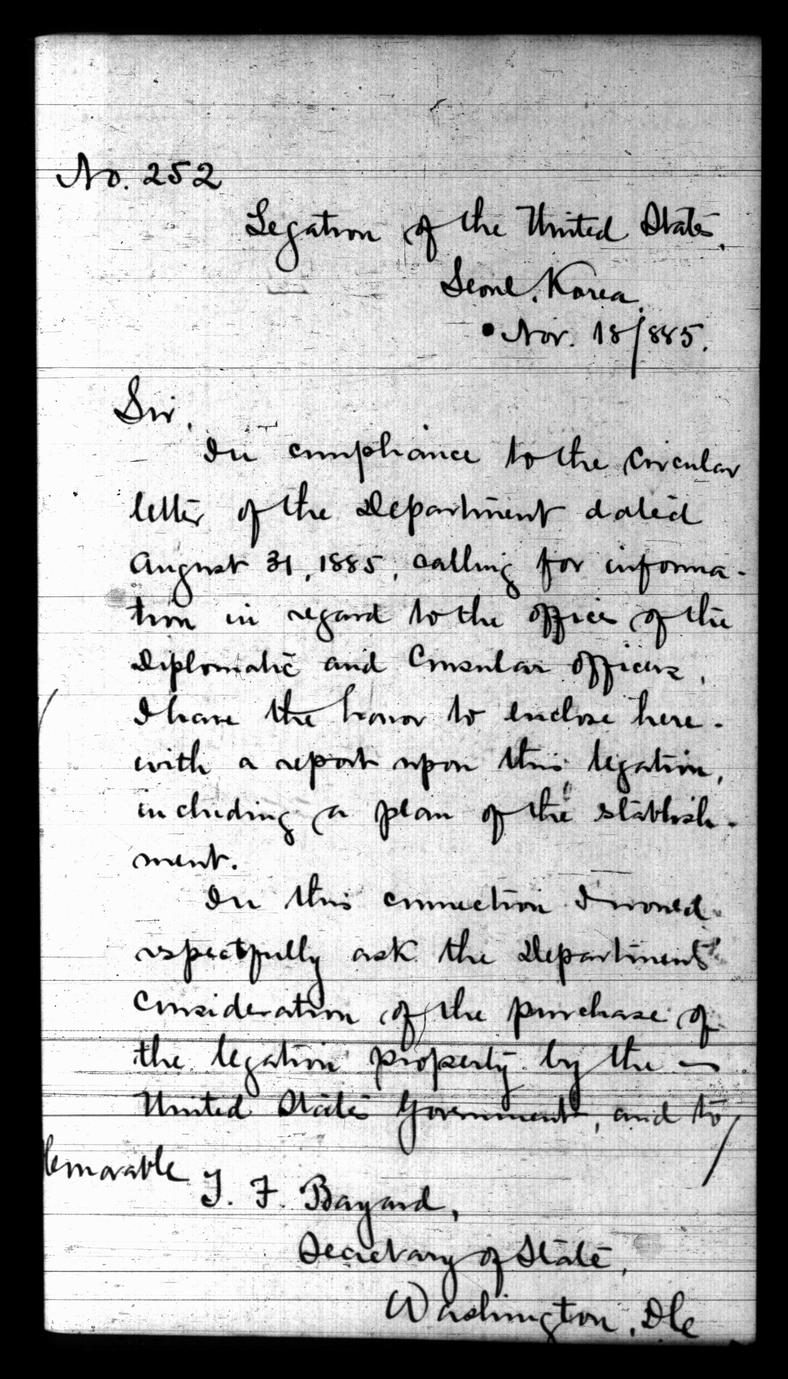 No. 252
Legation of the United States,
Seoul, Korea,
Nov. 18/885.
Sir,
In compliance to the circular
letter of the Department dated
August 31, 1885, calling for informa-
tion in regard to the offices of the
Diplomatic and Consular officers,
I have the honor to enclose here-
with a report upon this legation,
including a plan of the establish-
ment.
In this connection I would
respectfully ask the Department's
consideration of the purchase of
the legation property by the
United States Government, and to
Honorable T. F. Bayard,
Secretary of State,
Washington, D.C.